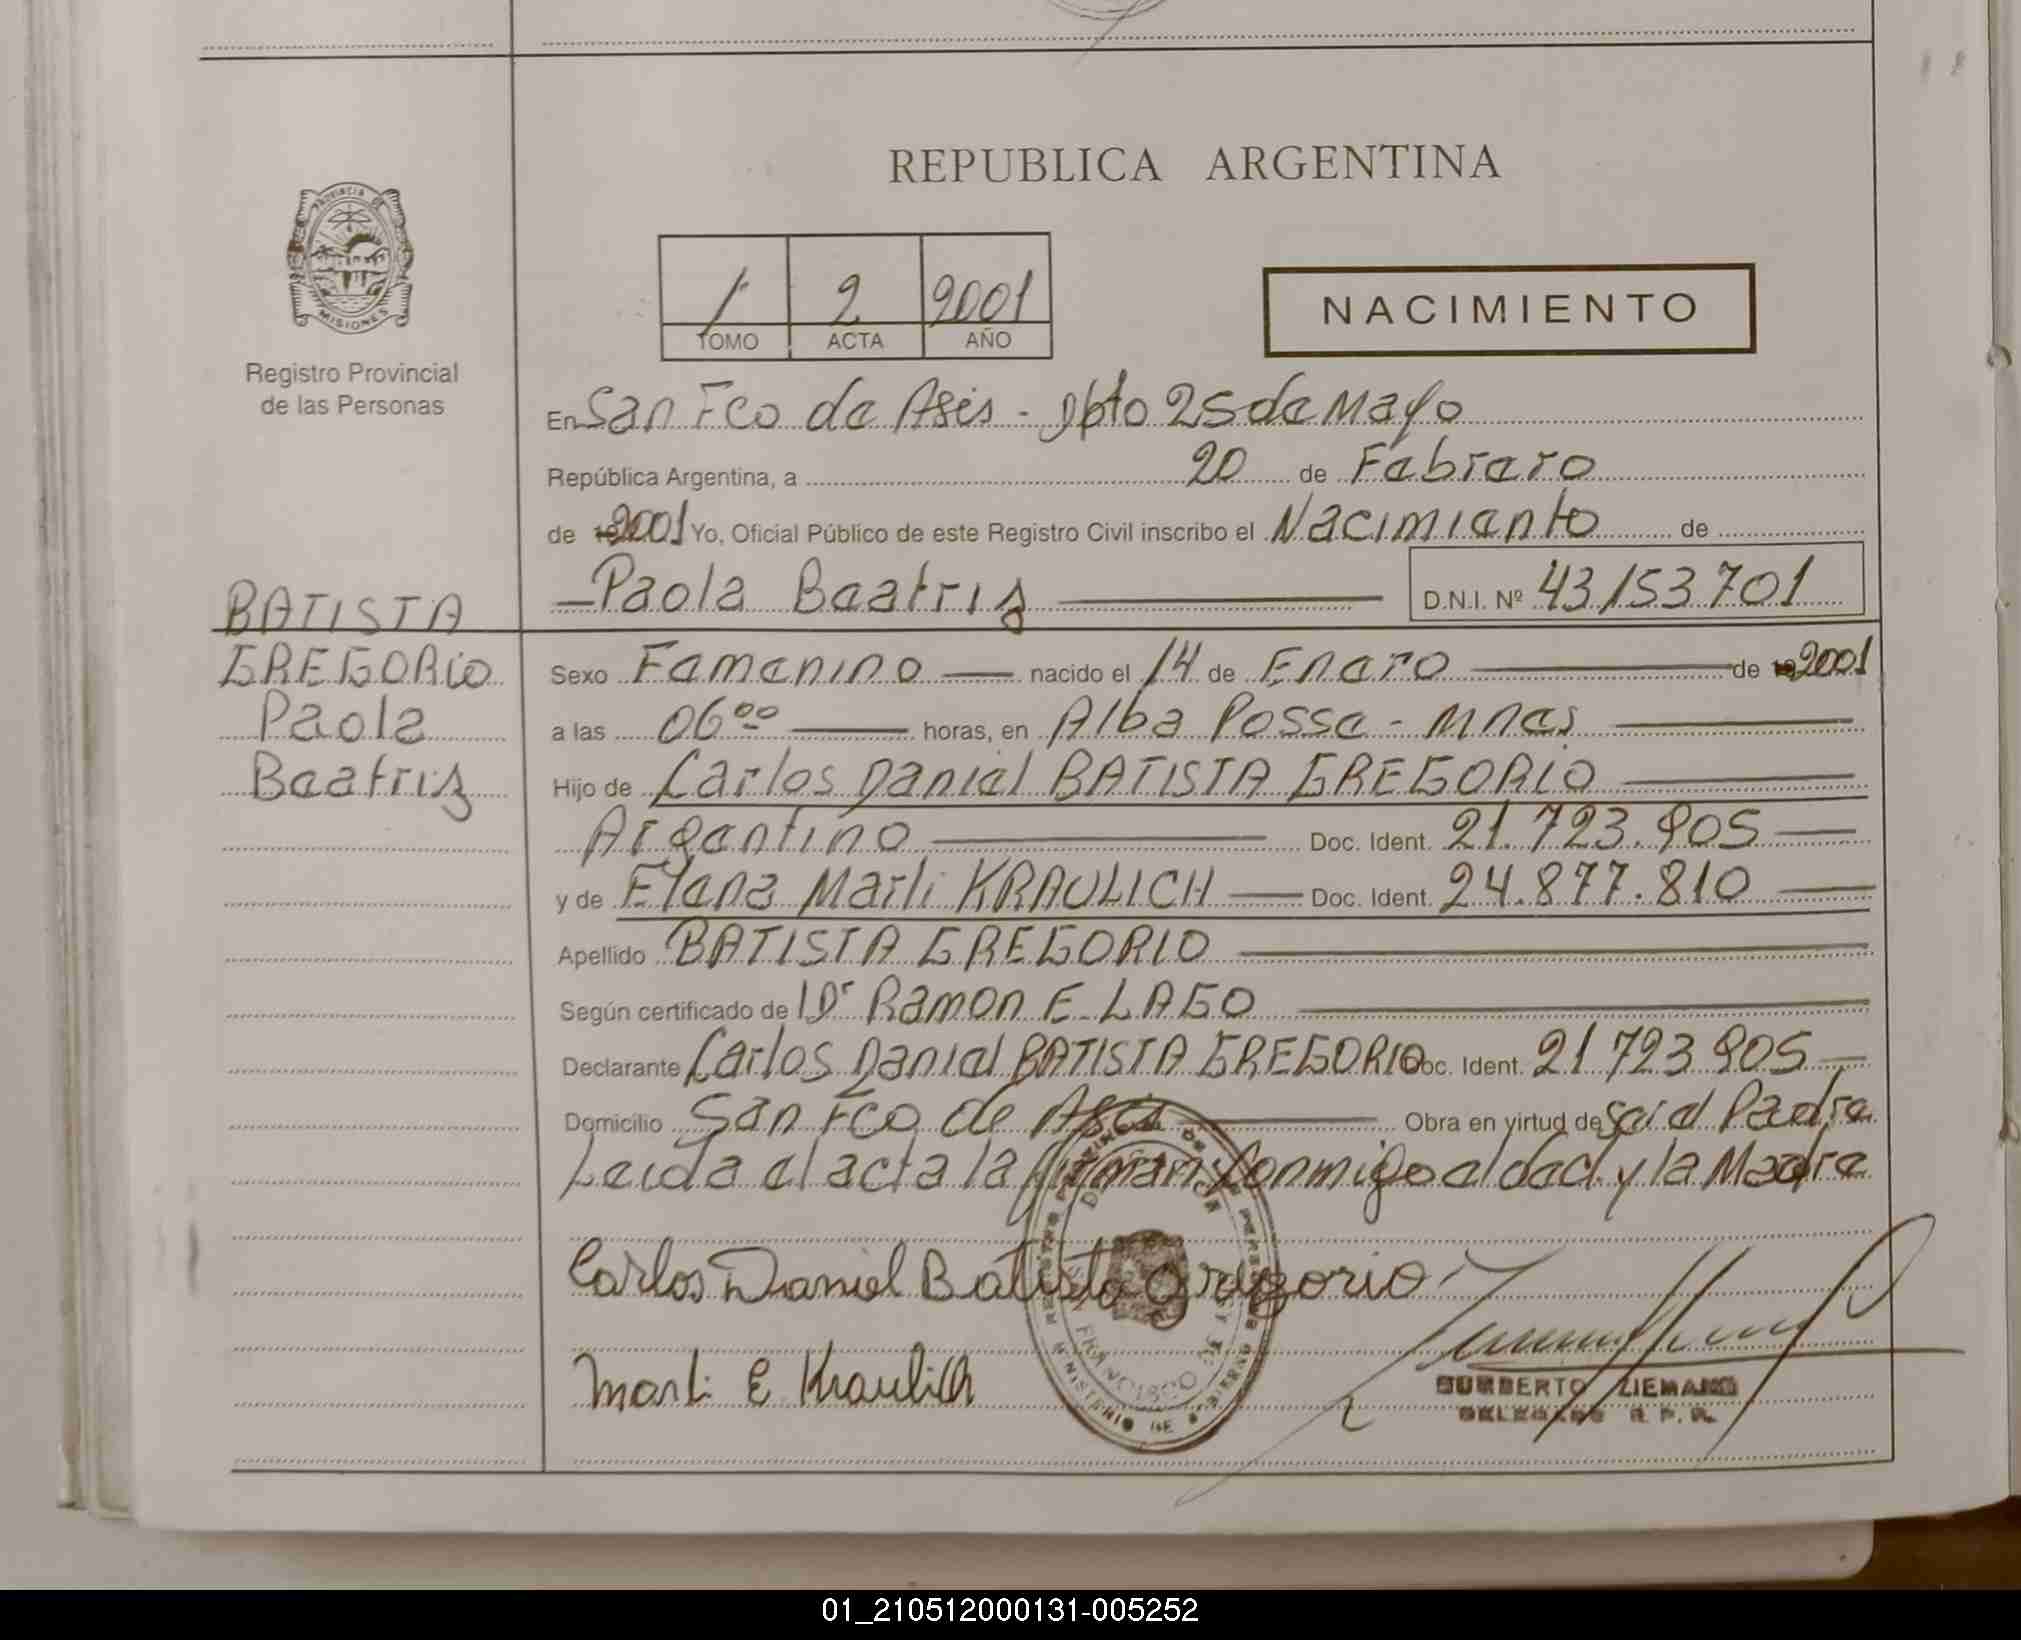 REPUBLICA ARGENTINA
PROVINCIA DE
MISIONES
Registro Provincial
de las Personas
1 2 2001
TOMO ACTA AÑO
NACIMIENTO
En San Fco de Asis - Dpto 25 de Mayo
República Argentina, a 20 de Febrero
de 2001 Yo, Oficial Público de este Registro Civil inscribo el Nacimiento de
Paola Beatriz D.N.I. Nº 43153701
BATISTA
GREGORIO
Paola
Beatriz
Sexo Femenino nacido el 14 de Enero de 2001
a las 06⁰⁰ horas, en Alba Posse - Mnes
Hijo de Carlos Daniel BATISTA GREGORIO
Argentino Doc. Ident. 21.723.905
y de Elena Marli KRAULICH Doc. Ident. 24.877.810
Apellido BATISTA GREGORIO
Según certificado de Dr Ramon E. LAGO
Declarante Carlos Daniel BATISTA GREGORIO Doc. Ident. 21 723 905
Domicilio San Fco de Asis Obra en virtud de ser el Padre
Leida el acta la firman conmigo el decl. y la Madre
Carlos Daniel Batista Gregorio
Marli E Kraulich
FRANCISCO DE
MINISTERIO DE GOBIERNO
HUMBERTO ZIEMANN
DELEGADO R. P. P.
01_210512000131-005252